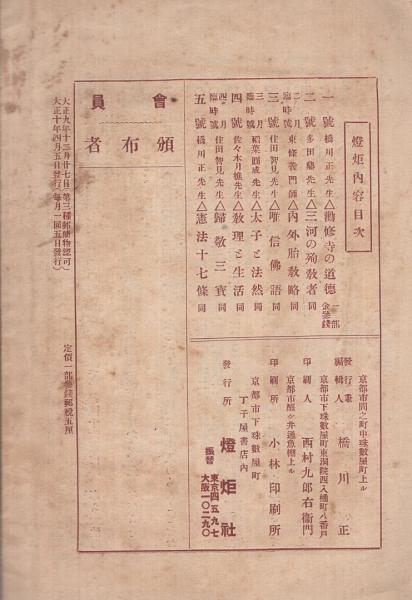 燈炬內容目次
一號 橋川正先生△勸修寺の道德 一部金叄錢
二號 多田鼎先生△三河の殉敎者 同
二月臨時號 東條義門師△內外胎敎略 同
三號 住田智見先生△唯信佛語 同
三月臨時號 稻葉圓成先生△太子と法然 同
四號 佐々木月樵先生△敎理と生活 同
四月臨時號 住田智見先生△歸敬三寶 同
五號 橋川正先生△憲法十七條 同
京都市間之町中珠數屋町上ル
發行兼編輯人 橋川正
京都市下珠數屋町東洞院西入橘町八番戶
印刷人 西村九郎右衞門
京都市醒ヶ井通魚棚上ル
印刷所 小林印刷所
京都市下珠數屋町
丁子屋書店內
發行所 燈炬社
振替 東京四五九七 大阪一〇二九〇
會員
頒布者
大正九年十二月廿七日(第三種郵便物認可)
大正十年四月五日發行(每月一回五日發行)
定價一部叄錢郵稅五厘